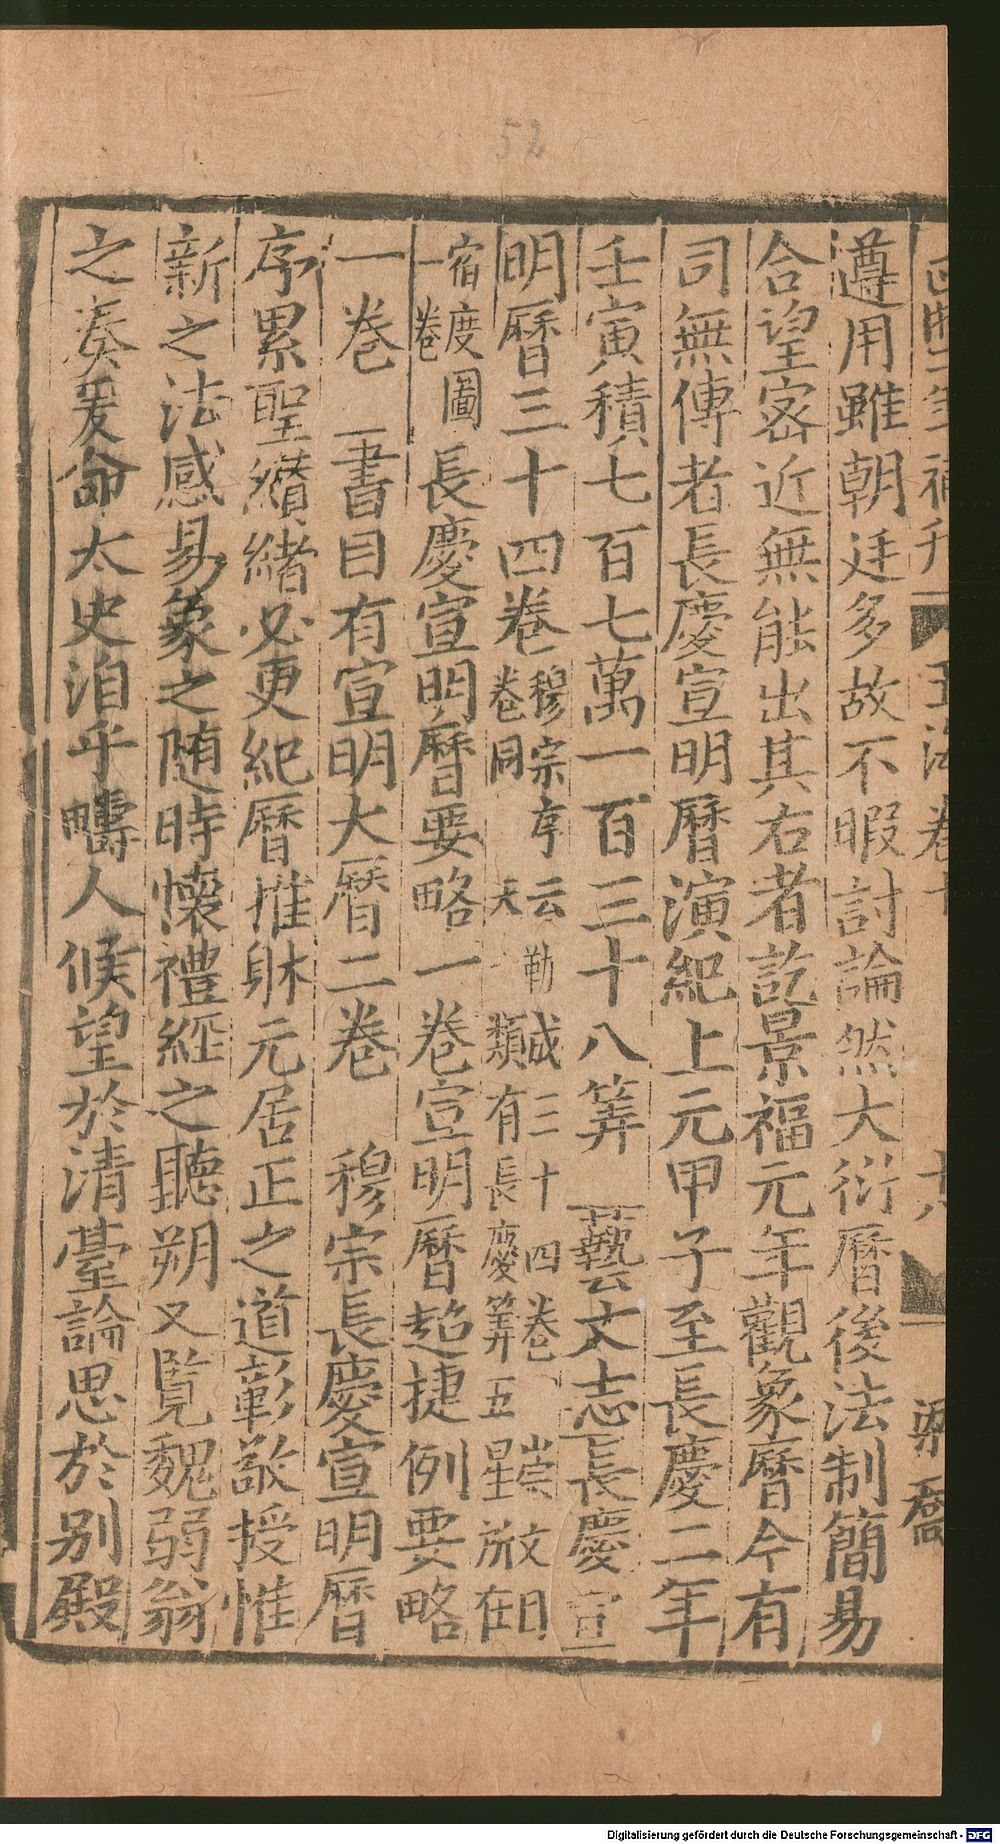 52
玉海卷十
十八
遵用雖朝廷多故不暇討論然大衍曆後法制簡易
合望密近無能出其右者訖景福元年觀象曆今有
司無傳者長慶宣明曆演紀上元甲子至長慶二年
壬寅積七百七萬一百三十八筭 藝文志長慶宣
明曆三十四卷穆宗序云勒成三十四卷崇文目
卷同 天 類有長慶筭五星㳺在
宿度圖
一卷
長慶宣明曆要略一卷宣明曆超捷例要略
一卷 書目有宣明大曆二卷 穆宗長慶宣明曆
序累聖纘緒必更紀曆推躰元居正之道彰敬授惟
新之法感易象之随時懷禮經之聽朔又覧魏弱翁
之奏爰命太史洎乎疇人候望於清臺論思於别殿
Digitalisierung gefördert durch die Deutsche Forschungsgemeinschaft - DFG